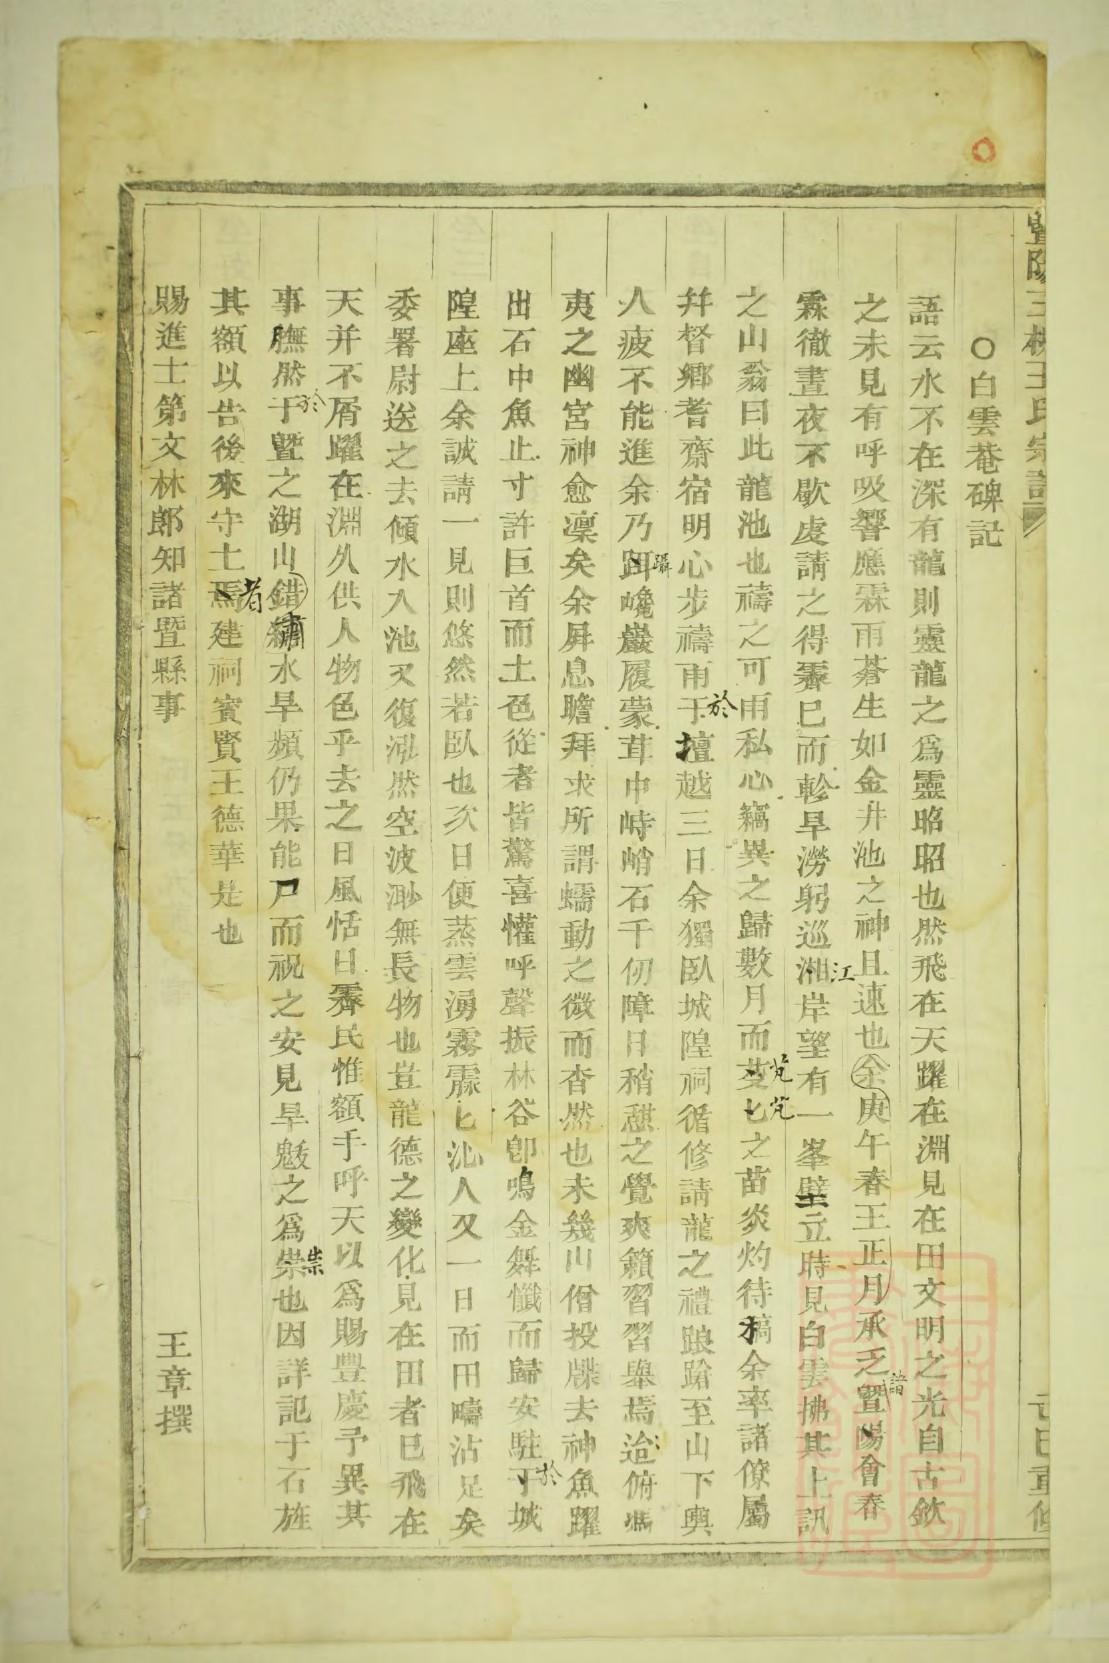 ○白雲菴碑記
語云水不在深有龍則靈龍之爲靈昭昭也然飛在天躍在淵見在田文明之光自古欽
之未見有呼吸響應霖雨蒼生如金井池之神且速也余庚午春王正月承乏暨陽會春
霖徹晝夜不歇虔請之得霽已而軫旱澇躬巡湘岸望有一峯壁立時見白雲拂其上訊
之山翁曰此龍池也禱之可雨私心竊異之歸數月而芃匕之苗炎灼待稿余率諸僚屬
并督鄉耆齋宿明心步禱雨于壇越三日余獨臥城隍祠循修請龍之禮踉蹌至山下輿
人疲不能進余乃躡巉巖履蒙茸中峙峭石千仞障日稍憇之覺爽籟習習舉焉迨俯馮
夷之幽宮神愈凛矣余屏息瞻拜求所謂蠕動之微而杳然也未幾山僧投牒去神魚躍
出石中魚止寸許巨首而土色從者皆驚喜懽呼聲振林谷卽鳴金舞幟而歸安駐于城
隍座上余誠請一見則悠然若臥也次日便蒸雲湧霧霢匕沁人又一日而田疇沾足矣
委署尉送之去傾水入池又復泓然空波渺無長物也豈龍德之變化見在田者已飛在
天并不屑躍在淵久供人物色乎去之日風恬日霽民惟額手呼天以爲賜豐慶予異其
事膴然于暨之湖山錯繡水旱頻仍果能尸而祝之安見旱魃之爲祟也因詳記于石旌
其額以告後來守土者焉建祠賓賢王德華是也
賜進士第文林郎知諸暨縣事
王章撰
於
者
祟
於
躡
於
芃芃
江
諸
暨陽
王氏宗譜
重修